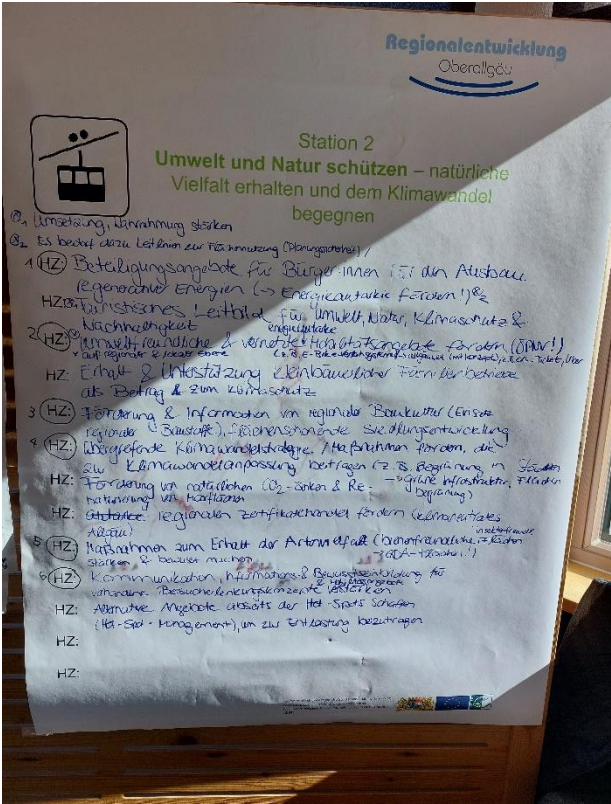 Regionalentwicklung
Oberallgäu
Station 2
Umwelt und Natur schützen – natürliche
Vielfalt erhalten und dem Klimawandel
begegnen
Umsetzung, Wahrnehmung stärken
Es bedarf dazu Leitlinien zur Flächennutzung (Planungssicherheit) /
1 HZ: Beteiligungsangebote für Bürger:innen für den Ausbau
regenerativer Energien (→ Energieautarkie fördern!)
HZ: Touristisches Leitbild für Umwelt, Natur, Klimaschutz &
Nachhaltigkeit
energieautarke
2 HZ: Umweltfreundliche & vernetzte Mobilitätsangebote fördern (ÖPNV!)
auf regionaler & lokaler Ebene (z.B. E-Bike
HZ: Erhalt & Unterstützung kleinbäuerlicher Familienbetriebe
als Beitrag & zum Klimaschutz
3 HZ: Förderung & Information von regionaler Baukultur (Einsatz
regionaler Baustoffe), flächenschonende Siedlungsentwicklung
4 HZ: Übergreifende Klimawandelstrategie / Maßnahmen fördern, die
zur Klimawandelanpassung beitragen (z.B. Begrünung in Städten
HZ: Förderung von natürlichen CO₂-Senken & Re- → Grüne Infrastruktur,
naturierung von Moorflächen begrünung)
HZ: regionalen Zertifikatehandel fördern (klimaneutrales
Allgäu)
insektenfreundl.
5 HZ: Maßnahmen zum Erhalt der Artenvielfalt (bienenfreundliche, Flächen
stärken & bewusst machen
6 HZ: Kommunikation, Informations- & Bewusstseinsbildung für
vorhandene Besucherlenkungskonzepte verstärken
HZ: Alternative Angebote abseits der Hot-Spots schaffen
(Hot-Spot-Management), um zur Entlastung beizutragen
HZ:
HZ: